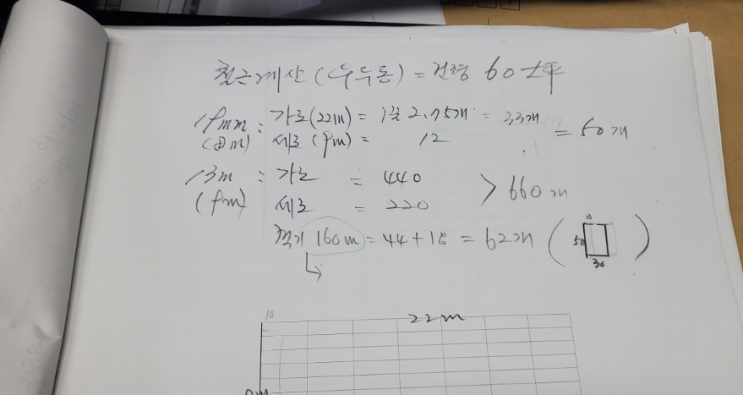 철근계산 (우두동) = 건평 60土平
19mm : 가로(22m) = 1줄 2.75개 = 33개
(8m) 세로 (9m) = 12 = 50개
13m : 가로 = 440
(9m) 세로 = 220 > 660m
160m = 44 + 18 = 62개 ( 50 30 )
22m